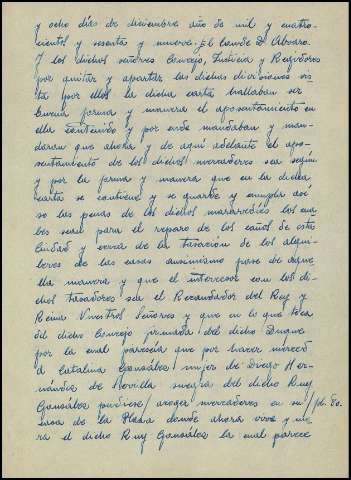 y ocho días de diciembre año de mil y cuatro-
cientos y sesenta y nueve. El Conde D. Alvaro.
Y los dichos señores Concejo, Justicia y Regidores
por quitar y apartar las dichas divisiones vis-
ta por ellos la dicha carta hallaban ser
buena forma y manera el aposentamiento en
ella contenido y por ende mandaban y man-
daron que ahora y de aquí adelante el apo-
sentamiento de los dichos mercaderes sea según
y por la forma y manera que en la dicha
carta se contiene y se guarde y cumpla así
so las penas de los dichos maravedíes los cua-
les sean para el reparo de los caños de esta
Ciudad y cerca de la tasación de los alqui-
leres de las casas asimismo pase de aque-
lla manera y que el intercesor con los di-
chos tasadores sea el Recaudador del Rey y
Reina Nuestros Señores y que en lo que toca
del dicho Concejo firmada del dicho Duque
por la cual parescía que por hacer merced
a Catalina González mujer de Diego Her-
nández de Sevilla suegra del dicho Ruy
González pudiese/ acoger mercaderes en su /fol. 80.
casa de la Plaza donde ahora vive y mo-
ra el dicho Ruy González la cual parece